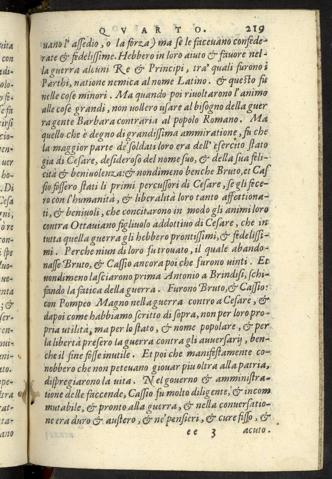 QVARTO. 219
uano l'assedio, o la forza) ma se le faceuano confede-
rate & fidelissime. Hebbero in loro aiuto & fauore nel-
la guerra alcuni Re & Principi, tra' quali furono i
Parthi, natione nemica al nome Latino. & questo fù
nelle cose minori. Ma quando poi riuoltarono l'animo
alle cose grandi, non uollero usare al bisogno della guer
ra gente Barbara contraria al popolo Romano. Ma
quello che è degno di grandissima ammiratione, fu che
la maggior parte de' soldati loro era dell' esercito stato
gia di Cesare, desideroso del nome suo, & della sua feli-
cità & beniuolenza: & nondimeno benche Bruto, et Cas
sio fossero stati li primi percussori di Cesare, se gli fece-
ro con l'humanità, & liberalità loro tanto affettiona-
ti, & beniuoli, che concitarono in modo gli animi loro
contra Ottauiano figliuolo addottiuo di Cesare, che in
tutta quella guerra gli hebbero prontissimi, & fidelissi-
mi. Perche niun di loro fu trouato, il quale abando-
nasse Bruto, & Cassio ancora poi che furono uinti. Et
nondimeno lasciarono prima Antonio a Brindisi, schi-
fando la fatica della guerra. Furono Bruto, & Cassio:
con Pompeo Magno nella guerra contro a Cesare, &
dapoi come habbiamo scritto di sopra, non per loro pro-
pria utilità, ma per lo stato, & nome popolare, & per
la libertà presero la guerra contra gli auuersarij, ben-
che il fine fosse inutile. Et poi che manifestamente co-
nobbero che non poteuano giouar piu oltra alla patria,
dispregiarono la uita. Nel gouerno & amministra-
tione delle faccende, Cassio fu molto diligente, & incom
mutabile, & pronto alla guerra, & nella conuersatio-
ne era duro & austero, & ne' pensieri, & cure fisso, &
ee 3 acuto.